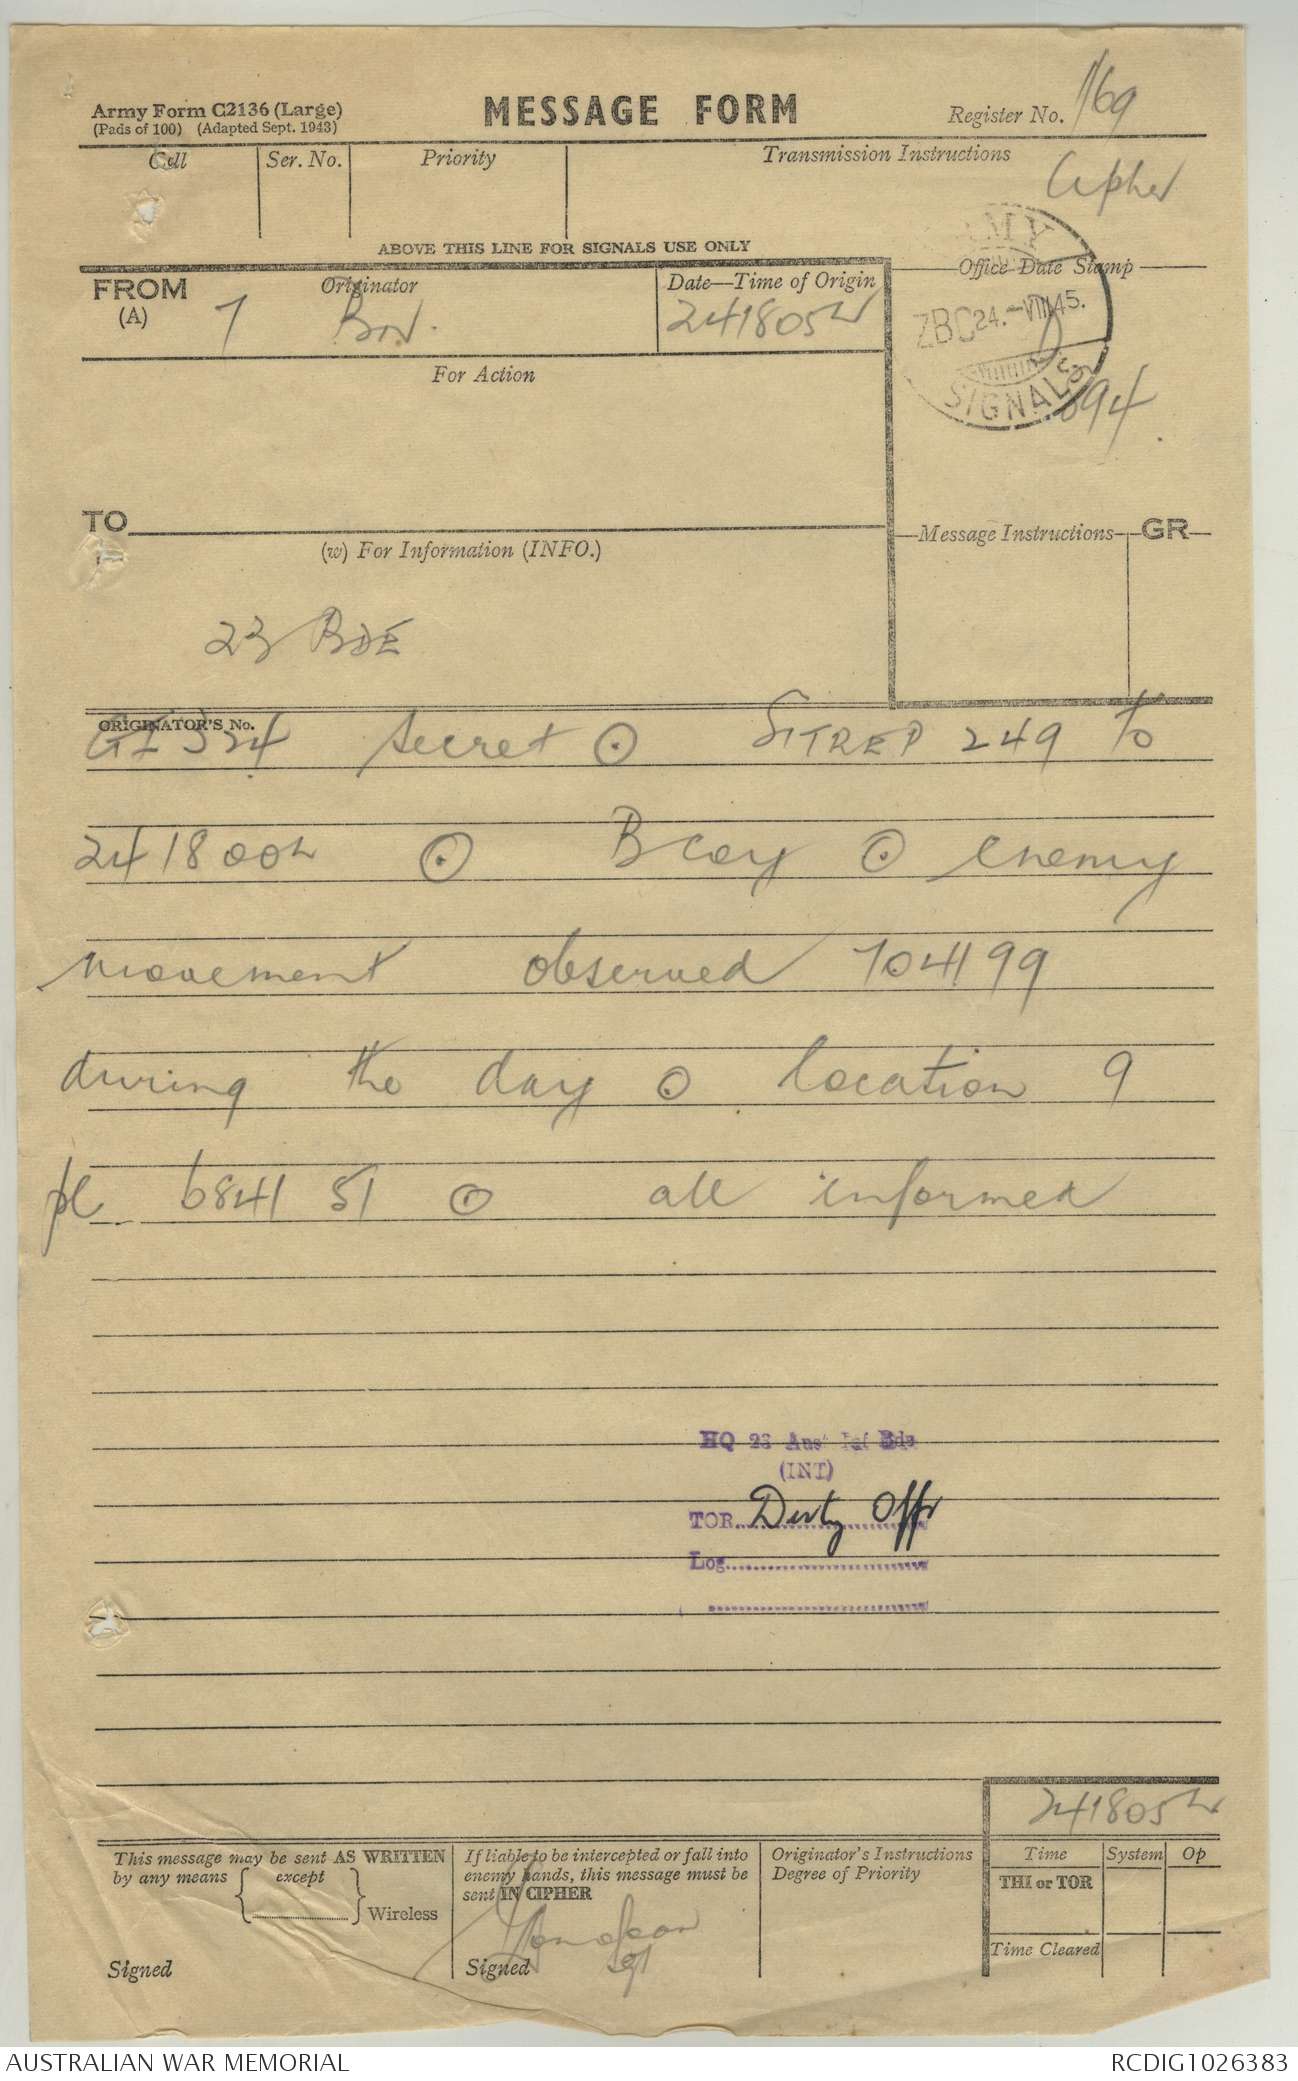 Army Form C2136 (Large)
(Pads of 100) (Adapted Sept. 1943)
MESSAGE FORM
Register No. 1/69
Call
Ser. No.
Priority
Transmission Instructions
Cipher
ABOVE THIS LINE FOR SIGNALS USE ONLY
FROM
(A)
Originator
7 Bn.
Date—Time of Origin
241805L
Office Date Stamp
ZBC 24.-VIII.45.
SIGNALS
694
For Action
TO
(w) For Information (INFO.)
23 BDE
Message Instructions
GR
ORIGINATOR'S No.
GI 524 Secret ⊙ SITREP 249 to
241800L ⊙ B coy ⊙ enemy
movement observed 704199
during the day ⊙ location 9
pl 684151 ⊙ all informed
HQ 23 Aust Inf Bde
(INT)
TOR Duty Offr
Log
241805L
This message may be sent AS WRITTEN
by any means except
Wireless
Signed
If liable to be intercepted or fall into
enemy hands, this message must be
sent IN CIPHER
Signed Sgt
Originator's Instructions
Degree of Priority
Time System Op
THI or TOR
Time Cleared
AUSTRALIAN WAR MEMORIAL
RCDIG1026383